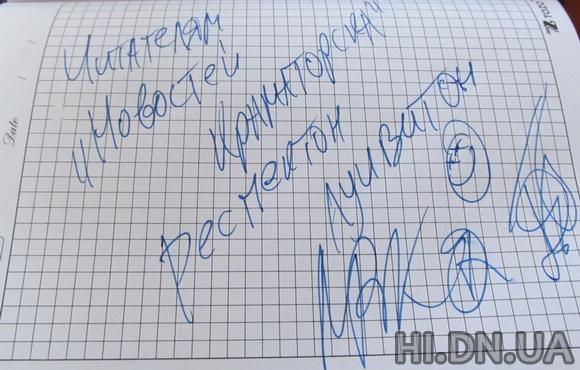 Читателям
"Новостей
Краматорска"
респектон
луивитон
HI.DN.UA
Date